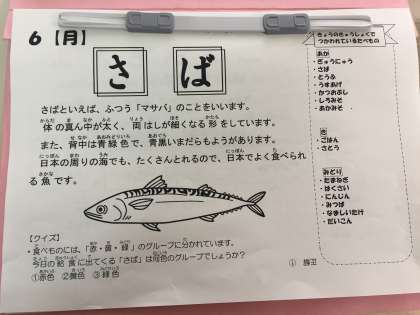 6【月】
さ ば
さばといえば、ふつう「マサバ」のことをいいます。
体の真ん中が太く、両はしが細くなる形をしています。
また、背中は青緑色で、青黒いまだらもようがあります。
日本の周りの海でも、たくさんとれるので、日本でよく食べられ
る魚です。
【クイズ】
・食べものには、「赤・黄・緑」のグループに分かれています。
今日の給食に出てくる「さば」は何色のグループでしょうか？
①赤色 ②黄色 ③緑色
きょうのきゅうしょくで
つかわれているたべもの
あか
・ぎゅうにゅう
・さば
・とうふ
・うすあげ
・かつおぶし
・しろみそ
・あかみそ
き
・ごはん
・さとう
みどり
・たまねぎ
・はくさい
・にんじん
・みつば
・なましいたけ
・だいこん